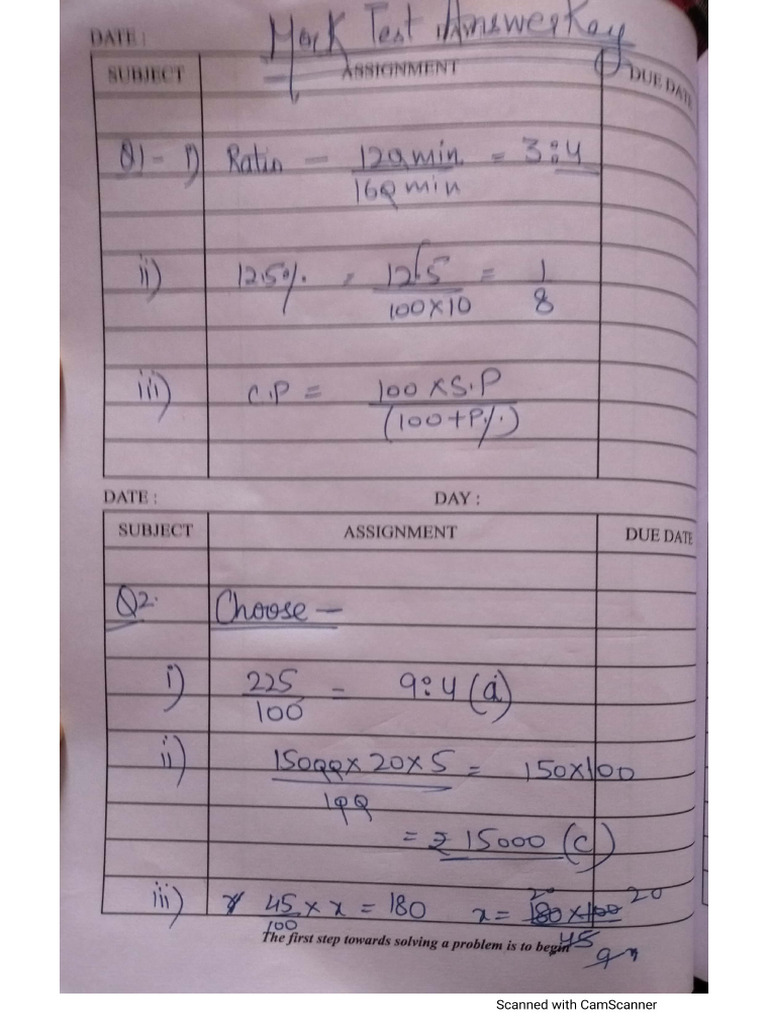 Mock Test Answer Key
DATE :
SUBJECT ASSIGNMENT DUE DATE
Q1 - i) Ratio - 120 min. / 160 min = 3:4
ii) 12.5% = 125 / 100×10 = 1 / 8
iii) C.P = 100 × S.P / (100+P%)
DATE : DAY :
SUBJECT ASSIGNMENT DUE DATE
Q2. Choose -
i) 225 / 100 = 9:4 (a)
ii) 15000 × 20 × 5 / 100 = 150×100
= ₹ 15000 (c)
iii) 45 / 100 × x = 180 x = 180 × 100 / 45 20 20
The first step towards solving a problem is to begin
Scanned with CamScanner